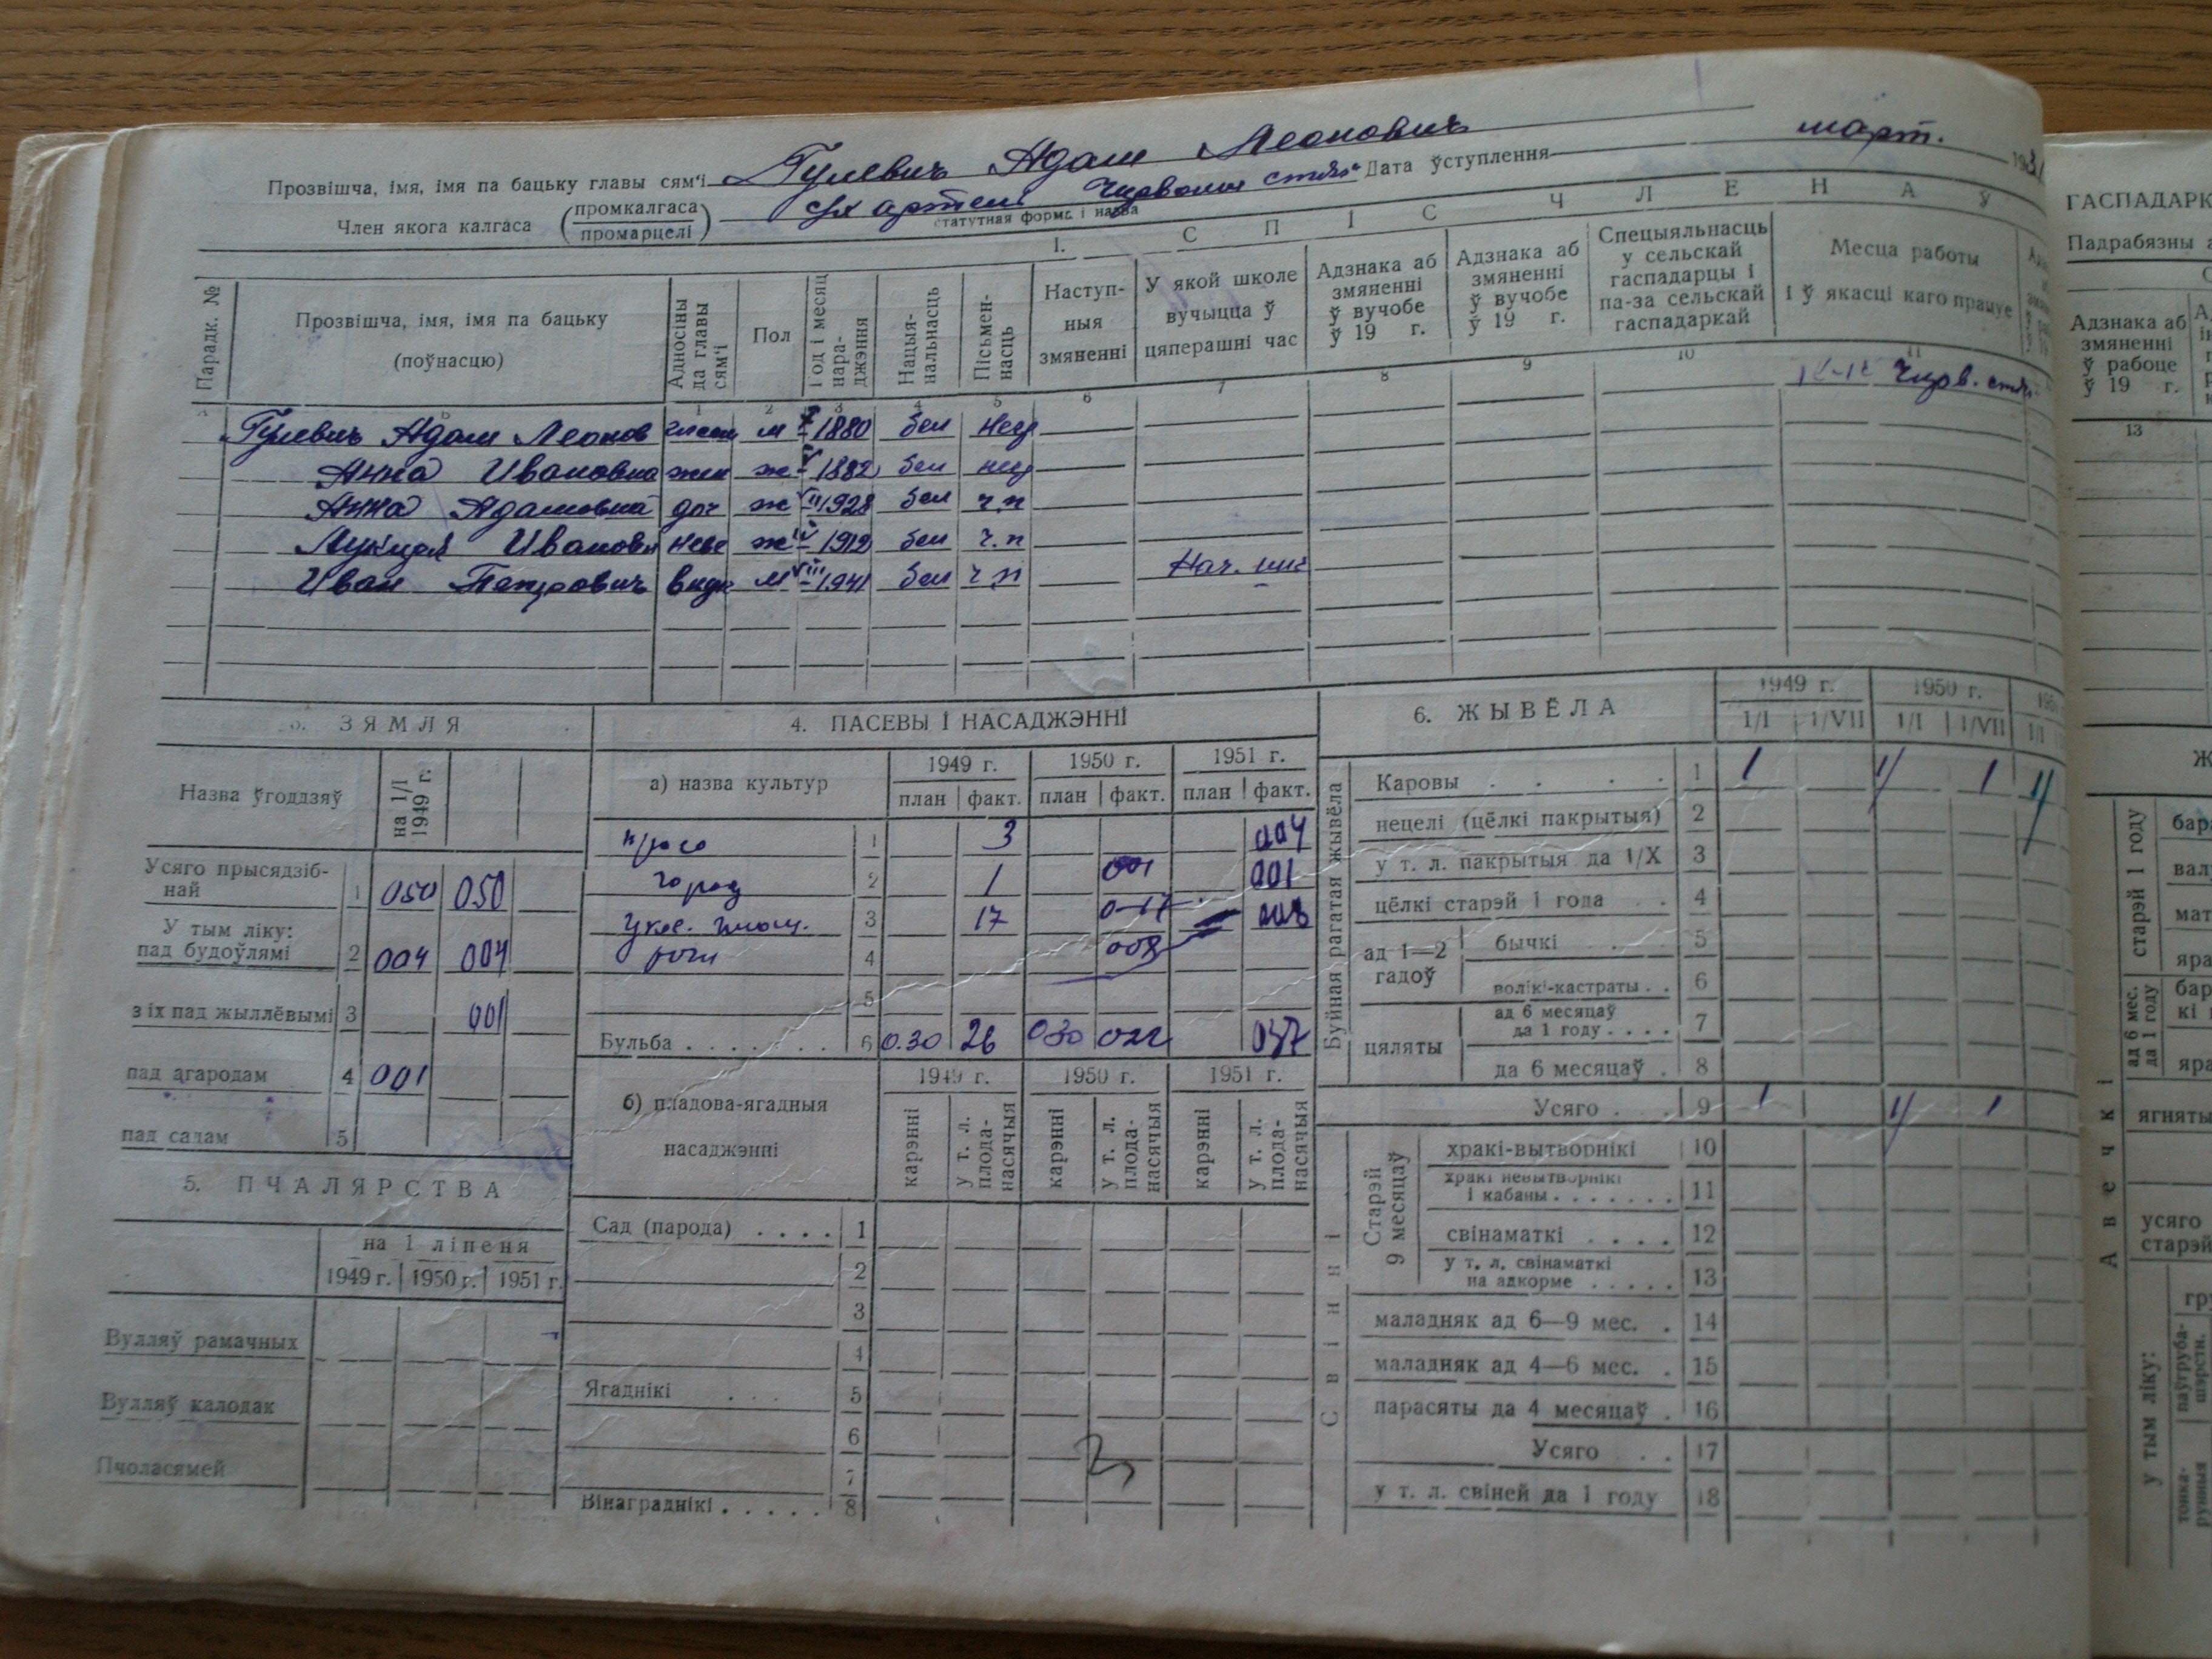 Прозвішча, імя, імя па бацьку главы сям'і Гулевич Адам Леонович Дата ўступлення март. 1931
Член якога калгаса (промкалгаса / промарцелі) с/х артели "Чырвоный
статутная форма і назва
I. СПІС ЧЛЕНАЎ
Парадк. № Прозвішча, імя, імя па бацьку (поўнасцю) Адносіны да главы сям'і Пол Год і месяц нараджэння Нацыянальнасць Пісьменнасць Наступныя змяненні У якой школе вучыцца ў цяперашні час Адзнака аб змяненні ў вучобе ў 19 г. Адзнака аб змяненні ў вучобе ў 19 г. Спецыяльнасць у сельскай гаспадарцы і па-за сельскай гаспадаркай Месца работы і ў якасці каго працуе
1 2 3 4 5 6 7 8 9 10 11
Гулевич Адам Леонов м 1880 бел Чырв.
Анна Ивановна жен ж 1882 бел
Анна Адамовна доч ж 1928 бел ч.п
Ивановн неве ж 1912 бел ч.п
Иван Петрович внук м VIII 1941 бел ч.п Нач. шк
3. ЗЯМЛЯ
Назва ўгоддзяў на 1/I 1949 г.
Усяго прысядзібнай 1 050 050
У тым ліку: пад будоўлямі 2 004 004
з іх пад жыллёвымі 3 001
пад агародам 4 001
пад садам 5
5. ПЧАЛЯРСТВА
на 1 ліпеня
1949 г. 1950 г. 1951 г.
Вулляў рамачных
Вулляў калодак
Пчоласямей
4. ПАСЕВЫ І НАСАДЖЭННІ
а) назва культур 1949 г. 1950 г. 1951 г.
план факт. план факт. план факт.
просо 1 3 004
город 2 1 001 001
3 17 008
4 008
5
Бульба 6 0.30 26 030 037
б) пладова-ягадныя насаджэнні 1949 г. 1950 г. 1951 г.
карэнні у т. л. плоданасячыя карэнні у т. л. плоданасячыя карэнні у т. л. плоданасячыя
Сад (парода) . . . . 1
2
3
4
Ягаднікі . . . 5
6
7
Вінаграднікі . . . . . 8
6. ЖЫВЁЛА 1949 г. 1950 г.
1/I 1/VII 1/I 1/VII 1/I
Буйная рагатая жывёла
Каровы . . . . 1 1 1 1 1
нецелі (цёлкі пакрытыя) 2
у т. л. пакрытыя да 1/X 3
цёлкі старэй 1 года . . 4
ад 1—2 гадоў бычкі . . . 5
волікі-кастраты . . 6
цяляты ад 6 месяцаў да 1 году . . . . 7
да 6 месяцаў . 8
Усяго . . 9 1 1 1
Свінні
Старэй 9 месяцаў хракі-вытворнікі 10
хракі невытворнікі і кабаны . . . . . . . 11
свінаматкі . . . . 12
у т. л. свінаматкі на адкорме . . . . . 13
маладняк ад 6—9 мес. . 14
маладняк ад 4—6 мес. . 15
парасяты да 4 месяцаў . 16
Усяго . . 17
у т. л. свіней да 1 году 18
ГАСПАДАРК
Падрабязны
Адзнака аб змяненні ў рабоце ў 19 г.
13
Авечкі
старэй 1 году
ад 6 мес. да 1 году
ягняты
усяго
старэй
у тым ліку: